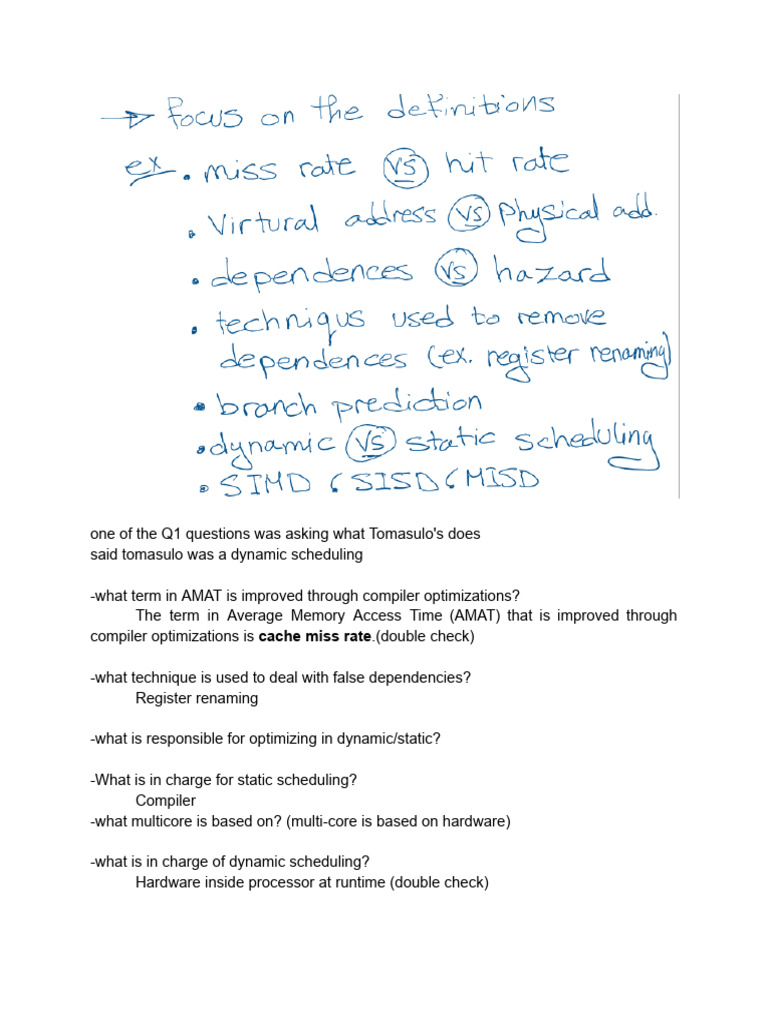 → Focus on the definitions
ex. • miss rate vs hit rate
• Virtural address vs physical add.
• dependences vs hazard
• techniqus used to remove
dependences (ex. register renaming)
• branch prediction
• dynamic vs static scheduling
• SIMD, SISD, MISD
one of the Q1 questions was asking what Tomasulo's does
said tomasulo was a dynamic scheduling
-what term in AMAT is improved through compiler optimizations?
The term in Average Memory Access Time (AMAT) that is improved through
compiler optimizations is cache miss rate.(double check)
-what technique is used to deal with false dependencies?
Register renaming
-what is responsible for optimizing in dynamic/static?
-What is in charge for static scheduling?
Compiler
-what multicore is based on? (multi-core is based on hardware)
-what is in charge of dynamic scheduling?
Hardware inside processor at runtime (double check)